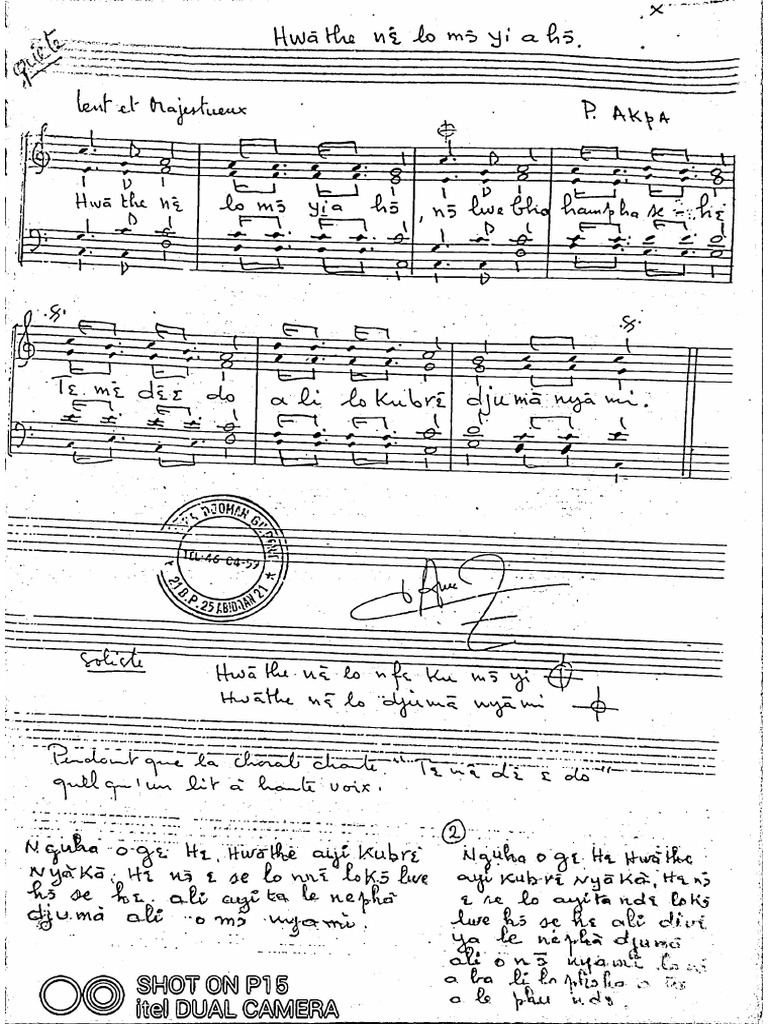 x
Hwãthe nɛ̃ lo mɔ̃ yi a hɔ̃.
quête
Lent et Majestueux
P. AKpA
Hwã the nɛ̃ lo mɔ̃ yi a hɔ̃, nɔ̃ lwe bhio hampha se - hɛ
Tɛ mɛ̃ dɛ̃ ɛ do a li lo Kubrɛ̃ djumã nyã mi.
DJOMAN
TEL: 46-04-57
21 B.P. 25 ABIDJAN 21
Soliste
Hwãthe nɛ̃ lo nfɛ Ku mɔ̃ yi
Hwãthe nɛ̃ lo djumã nyãmi
Pendant que la chorale chante "Tɛ nɛ̃ dɛ̃ ɛ do"
quelqu'un lit à haute voix.
Nguha õ gɛ Hɛ, Hwãthe ayi Kubrɛ̃
NyãKã. Hɛ nɔ̃ ɛ se lo nnɛ̃ loKɔ̃ lwe
hɔ̃ se hɛ ali ayita le nephã
djumã ali o mɔ̃ nyami.
2
Nguha o gɛ Hɛ Hwãthe
ayi Kubrɛ̃ NyãKã, Hɛ nɔ̃
ɛ se lo ayita ndɛ loKɔ̃
lwe hɔ̃ se hɛ ali divi
ya le nephã djumã
ali o nɔ̃ nyamĩ
a ba li lo
a le phu
SHOT ON P15
itel DUAL CAMERA